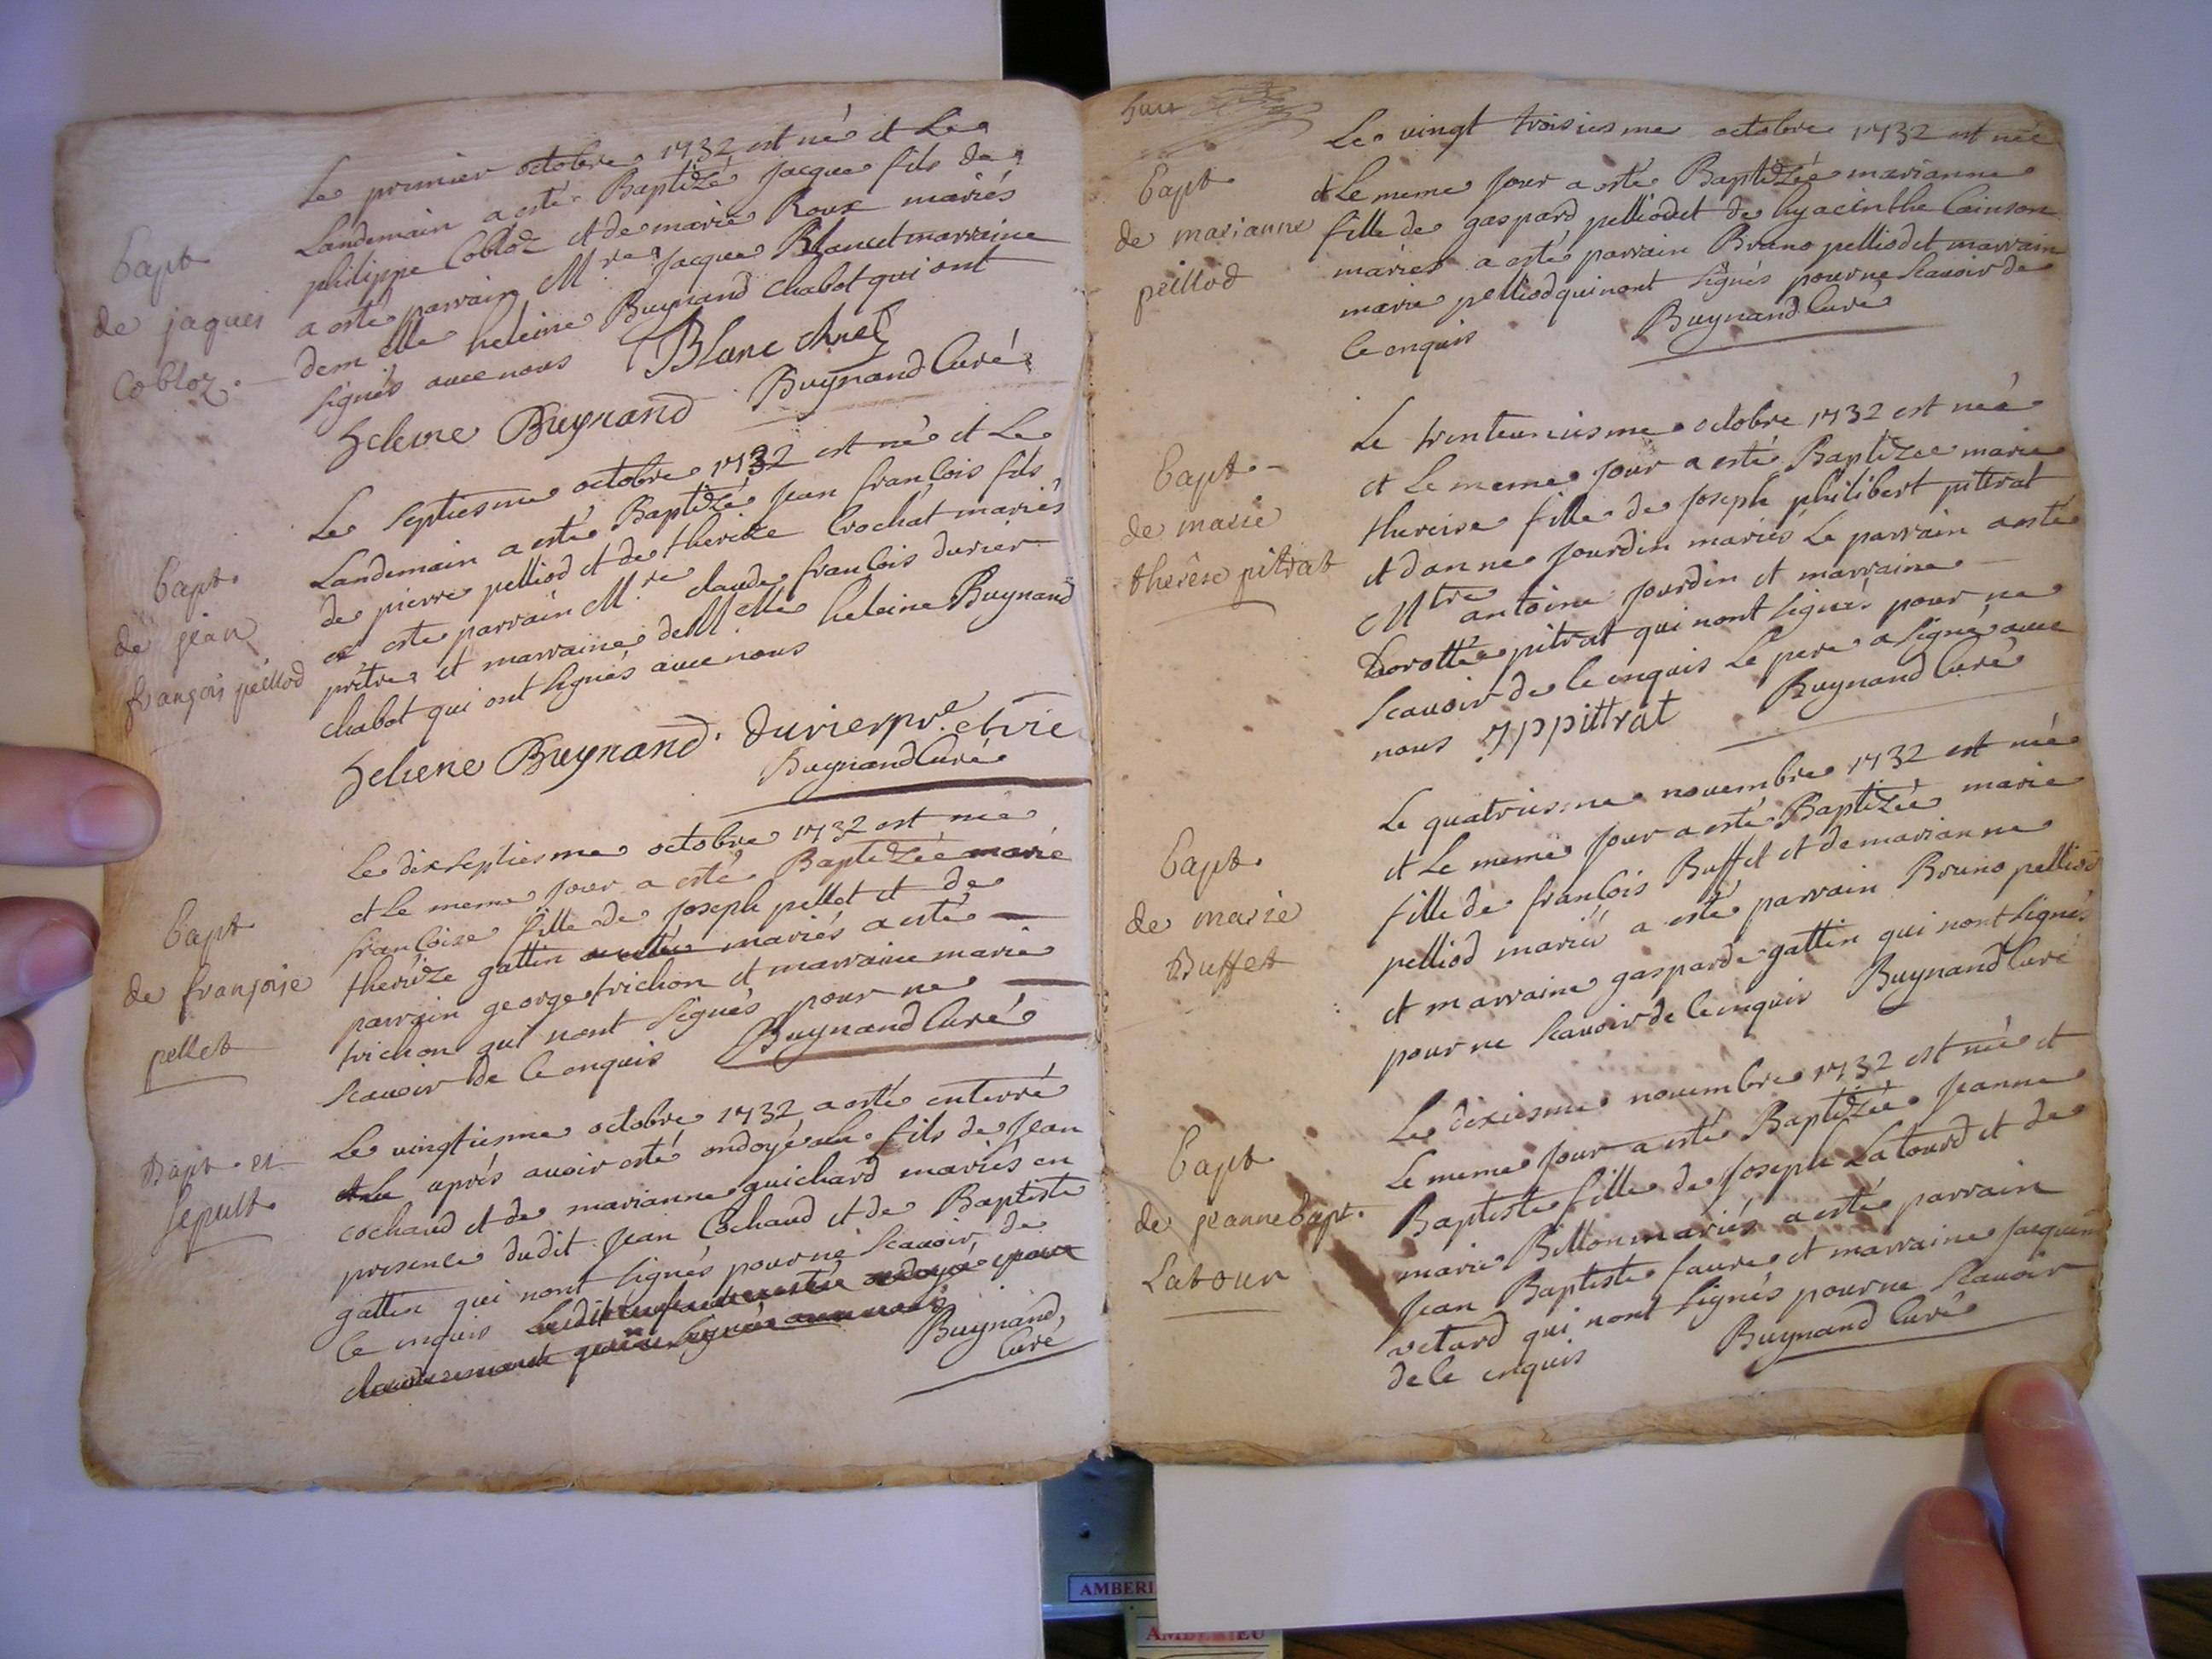 Bapt
de jaques
Cobloz.
Le premier octobre 1732 est né et Le
Landemain a esté Baptizé Jacque fils de
philippe Cobloz et de marie Roux mariés
a esté parrain Mre Jacque Blanc et marraine
demelle heleine Buynand chabot qui ont
signés avec nous Blanc
helene Buynand Buynand Curé
Bapt.
de jean
françois peillod
Le septiesme octobre 1732 est né et Le
Landemain a esté Baptizé Jean francois fils
de pierre pelliod et de therese Crochat mariés
a esté parrain Mre claude francois durier
prétre et marraine deMelle heleine Buynand
chabot qui ont signés avec nous
helene Buynand. durier pre et vic
Buynand Curé
Bapt
de françoise
pellet
Le dix septiesme octobre 1732 est née
et Le meme jour a esté Baptizée marie
francoise fille de Joseph pellet et de
therèze gattin mariés a esté
parrain george trichon et marraine marie
trichon qui nont signés pour ne
scavoir de ce enquis Buynand Curé
Bapt. et
sepult.
Le vingtiesme octobre 1732 a esté enterré
aprés avoir esté ondoyé fils de Jean
cochaud et de marianne guichard mariés en
presence dudit Jean Cochaud et de Baptiste
gattin qui nont signés pour ne scavoir de
ce enquis Ledit
Buynand,
Curé
Bapt
de marianne
peillod
Le vingt troisiesme octobre 1732 est née
et Le meme jour a esté Baptizée marianne
fille de gaspard pelliod et de hyacinthe Cainson
mariés a esté parrain Bruno pelliod et marraine
marie pelliod qui nont signés pour ne scavoir de
ce enquis Buynand Curé
Bapt. -
de marie
therèse pitrat
Le trenteuniesme octobre 1732 est née
et Le meme jour a esté Baptizee marie
thereise fille de Joseph philibert pittrat
et danne Jourdin mariés Le parrain a esté
Mtre antoine Jourdin et marraine
Dorottée pitrat qui nont signés pour ne
scavoir de ce enquis Le pere a signé avec
nous Jppittrat Buynand Curé
Bapt.
de marie
Buffet
Le quatriesme novembre 1732 est née
et Le meme jour a esté Baptizée marie
fille de francois Buffet et de marianne
pelliod mariés a esté parrain Bruno pelliod
et marraine gasparde gattin qui nont signés
pour ne scavoir de ce enquis Buynand Curé
Bapt
de jeanne bapt.
Latour
Le dixiesme novembre 1732 est née et
Le meme jour a esté Baptizée Jeanne
Baptiste fille de Joseph Latourd et de
marie Billon mariés a esté parrain
Jean Baptiste faure et marraine Jacquem
vetard qui nont signés pour ne scavoir
de ce enquis Buynand Curé
AMBERI
AMBERIEU